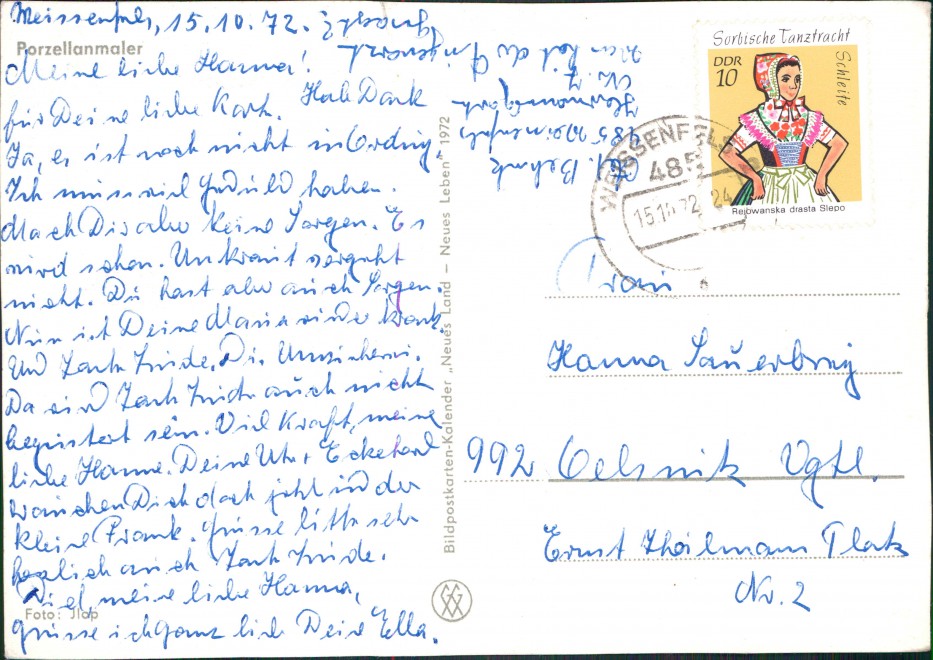 Weissenfels, 15.10.72.
Porzellanmaler
Meine liebe Hanna!
für Deine liebe Kart. Hab Dank
Ja, es ist noch nicht in Ordng.
Ich muss viel Geduld haben.
Mach Dir aber keine Sorgen. Es
wird schon. Unkraut vergeht
nicht. Du hast aber auch Sorgen.
Nun ist Deine Maria wieder krank.
Und Trude. Die
Da wird auch nicht
begeistert sein. Viel Kraft, meine
liebe Hanna. Deine Ute + Eckehard
brauchen Dich doch jetzt und der
kleine Frank. Grüsse bitte sehr
herzlich auch Trude.
Dich meine liebe Hanna,
grüsse ich ganz lieb Deine Ella.
Foto: Jlap
Bildpostkarten-Kalender „Neues Land – Neues Leben“ 1972
Abs. Behnk
485 Weissenfels
Nr. 7
Sorbische Tanztracht
Schleife
DDR
10
Rejowanska drasta Slepo
WEISSENFELS
485
15.10.72
24
Frau
Hanna Sauerbrey
992 Oelsnitz Vgtl.
Ernst Thälmann Platz
Nr. 2